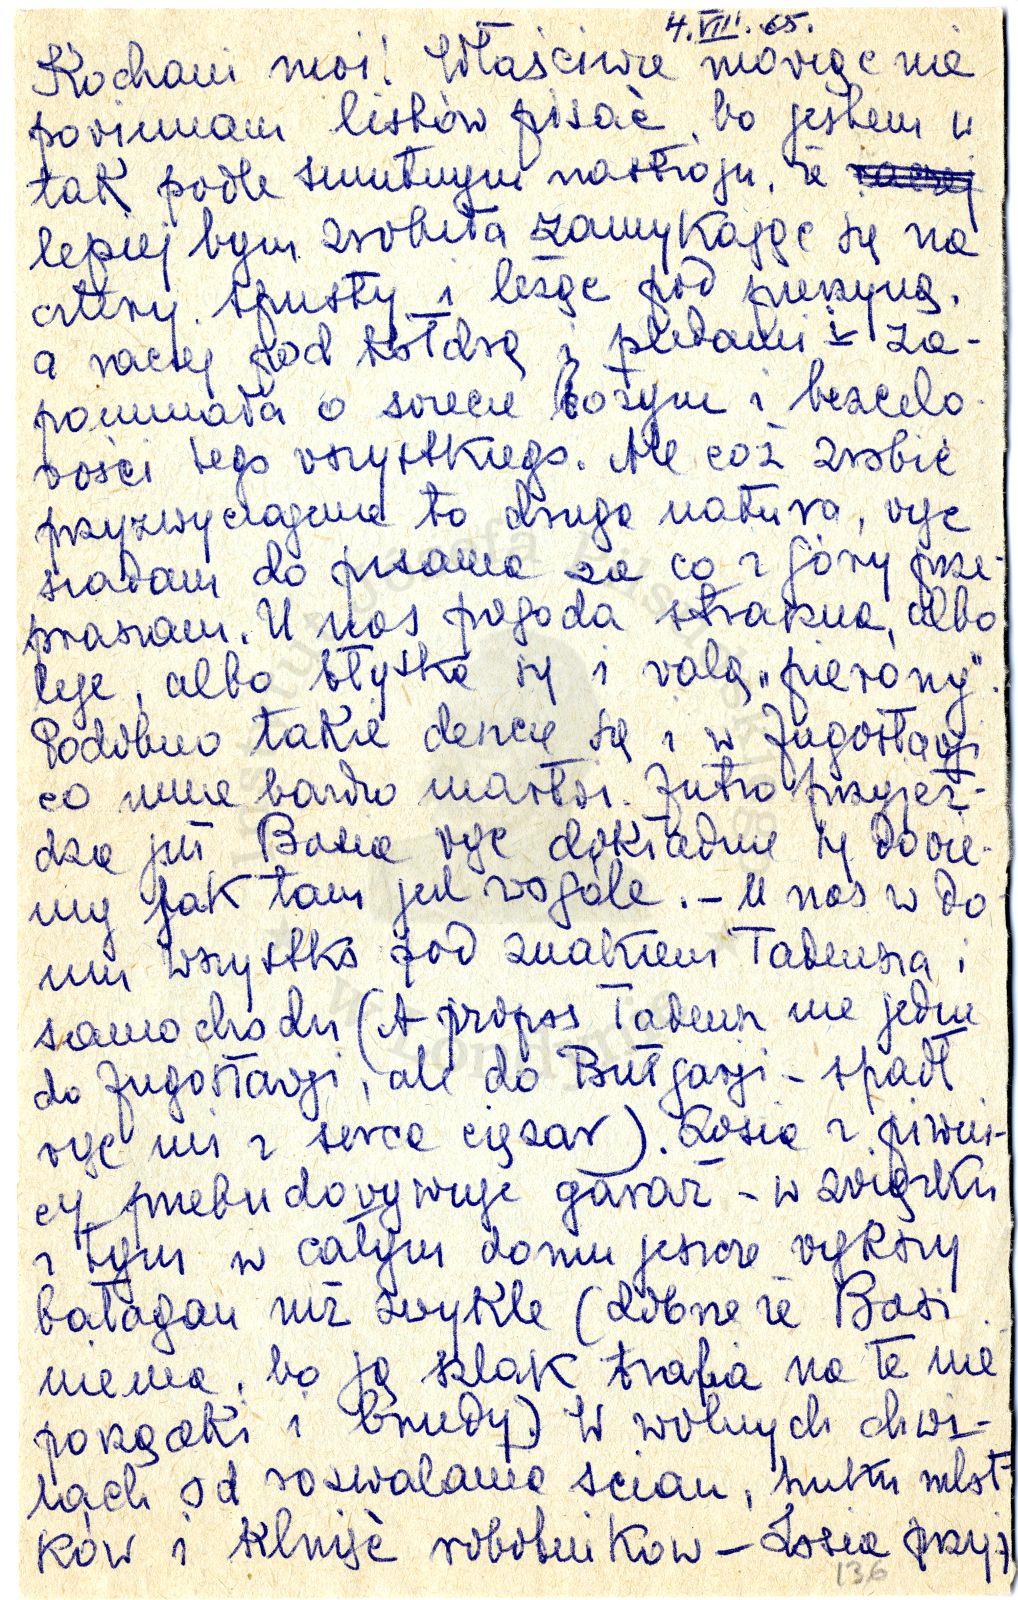 4.VIII.65.
Kochani moi! Właściwie mówiąc nie
powinnam listów pisać, bo jestem w
tak podle smutnym nastroju, że raczej
lepiej bym zrobiła zamykając się na
cztery spusty i leżąc pod pierzyną,
a raczej pod kołdrą i pledami i za-
pomniała o świecie bożym i bezcelo-
wości tego wszystkiego. Ale cóż zrobić
przyzwyczajenie to druga natura, więc
siadam do pisania za co z góry prze-
praszam. U nas pogoda straszna, albo
leje, albo błyska się i walą „pierony".
Podobno takie dzieje się i w Jugosławji
co mnie bardzo martwi. Jutro przyjeż-
dża już Basia więc dokładnie się dowie-
my jak tam jest wogóle. - U nas w do-
mu wszystko pod znakiem Tadeusza i
samochodu (A propos Tadeusz nie jedzie
do Jugosławji, ale do Bułgarji - spadł
więc mi z serca ciężar). Zosia z piwni-
cy przebudowywuje garaż - w związku
z tym w całym domu jeszcze większy
bałagan niż zwykle (dobrze że Basi
niema, bo ją szlak trafia na te nie
porządki i brudy.) W wolnych chwi-
lach od rozwalania ścian, huku młot
ków i klnięć robotników - Zosia przyj
136